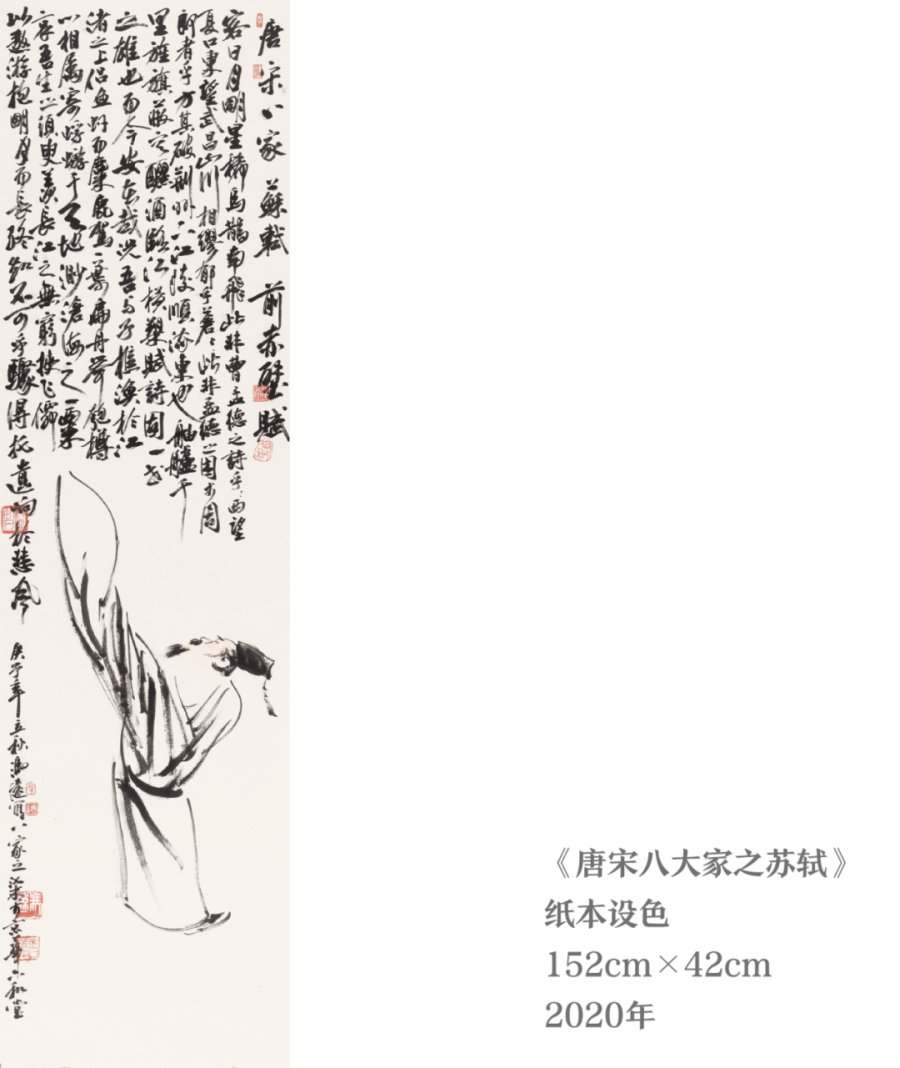 唐宋八家 蘇軾 前赤壁賦
客曰月明星稀烏鵲南飛此非曹孟德之詩乎西望
夏口東望武昌山川相繆郁乎蒼〻此非孟德之困於周
郎者乎方其破荊州下江陵順流東也舳艫千
里旌旗蔽空釃酒臨江橫槊賦詩固一世
之雄也而今安在哉况吾与子樵漁於江
渚之上侣魚虾而麋鹿駕一葉扁舟舉匏樽
以相属寄蜉蝣于天地渺滄海之一粟
哀吾生之須臾羨長江之無窮挾飛僊
以遨游抱明月而長終知不可乎驟得托遺响於悲風
庚子年立秋馮遠寫八家之柒於京華六和堂
《唐宋八大家之苏轼》
纸本设色
152cm×42cm
2020年